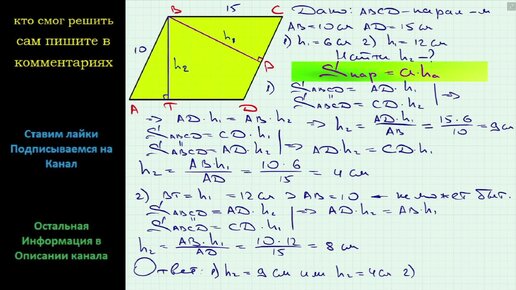 кто смог решить
сам пишите в
комментариях
Ставим лайки
Подписываемся на
Канал
Остальная
Информация в
Описании канала
B 15 C
10
h₁
h₂
D
A T D
Дано: ABCD-парал-м
AB=10см AD=15см
1) h₁=6см 2) h=12см
Найти h₂-?
Sпар = a·hₐ
1) SABCD = AD·h₁
SABCD = CD·h₂ | =>
=> AD·h₁ = AB·h₂ => h₂ = AD·h₁/AB = 15·6/10 = 9см
SABCD = CD·h₁
SABCD = AD·h₂ | => AD·h₂ = CD·h₁
h₂ = AB·h₁/AD = 10·6/15 = 4 см
2) BT=h₁ = 12см > AB=10 - не может быт.
SABCD = AD·h₂
SABCD = CD·h₁ | => AD·h₂ = AB·h₁
h₂ = AB·h₁/AD = 10·12/15 = 8 см
Ответ: 1) h₂=9см или h₂=4см 2)